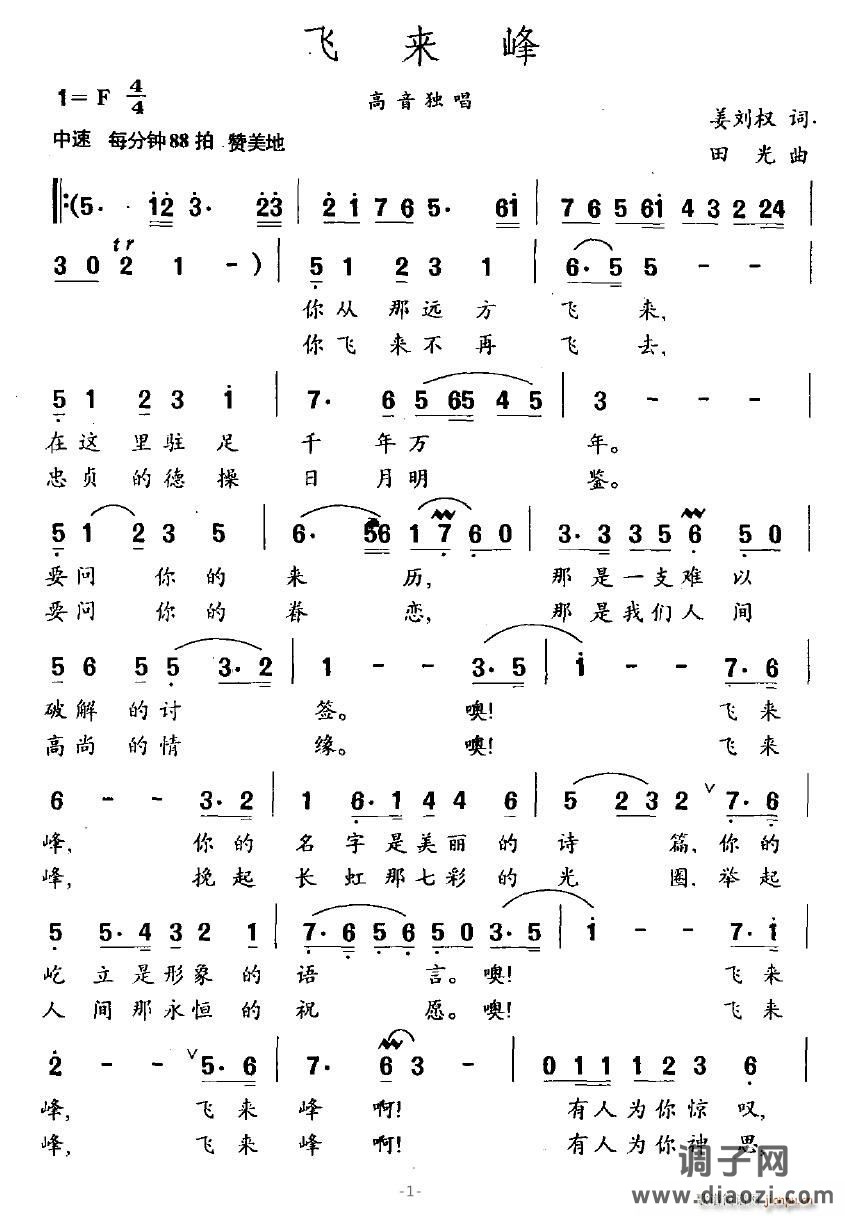 飞来峰
1=F 4/4
高音独唱
姜刘权 词.
中速 每分钟88拍 赞美地
田光曲
‖:(5· 12 3· 23 | 21 76 5· 61 | 76 561 43 224 |
tr
30 2 1 -) | 5 1 23 1 | 6·5 5 - - |
你从那远方 飞 来,
你飞来不再 飞 去,
5 1 23 1 | 7· 6 5 65 45 | 3 - - - |
在这里驻足 千 年万 年。
忠贞的德操 日 月明 鉴。
5 1 23 5 | 6· 56 17 60 | 3·3 356 50 |
要问 你的 来 历, 那是一支难以
要问 你的 眷 恋, 那是我们人间
5 6 55 3·2 | 1 - - 3·5 | 1 - - 7·6 |
破解的讨 签。 噢! 飞来
高尚的情 缘。 噢! 飞来
6 - - 3·2 | 1 6·1 44 6 | 5 23 2 ∨ 7·6 |
峰, 你的 名字是美丽的 诗 篇,你的
峰, 挽起 长虹那七彩的 光 圈.举起
5 5·4 32 1 | 7·6 56 50 3·5 | 1 - - 7·1 |
屹立是形象的 语 言。噢! 飞来
人间那永恒的 祝 愿。噢! 飞来
2 - - ∨ 5·6 | 7· 63 - | 011 123 6 |
峰, 飞来 峰 啊! 有人为你惊 叹,
峰, 飞来 峰 啊! 有人为你神 思,
-1-
调子网
www.diaozi.com